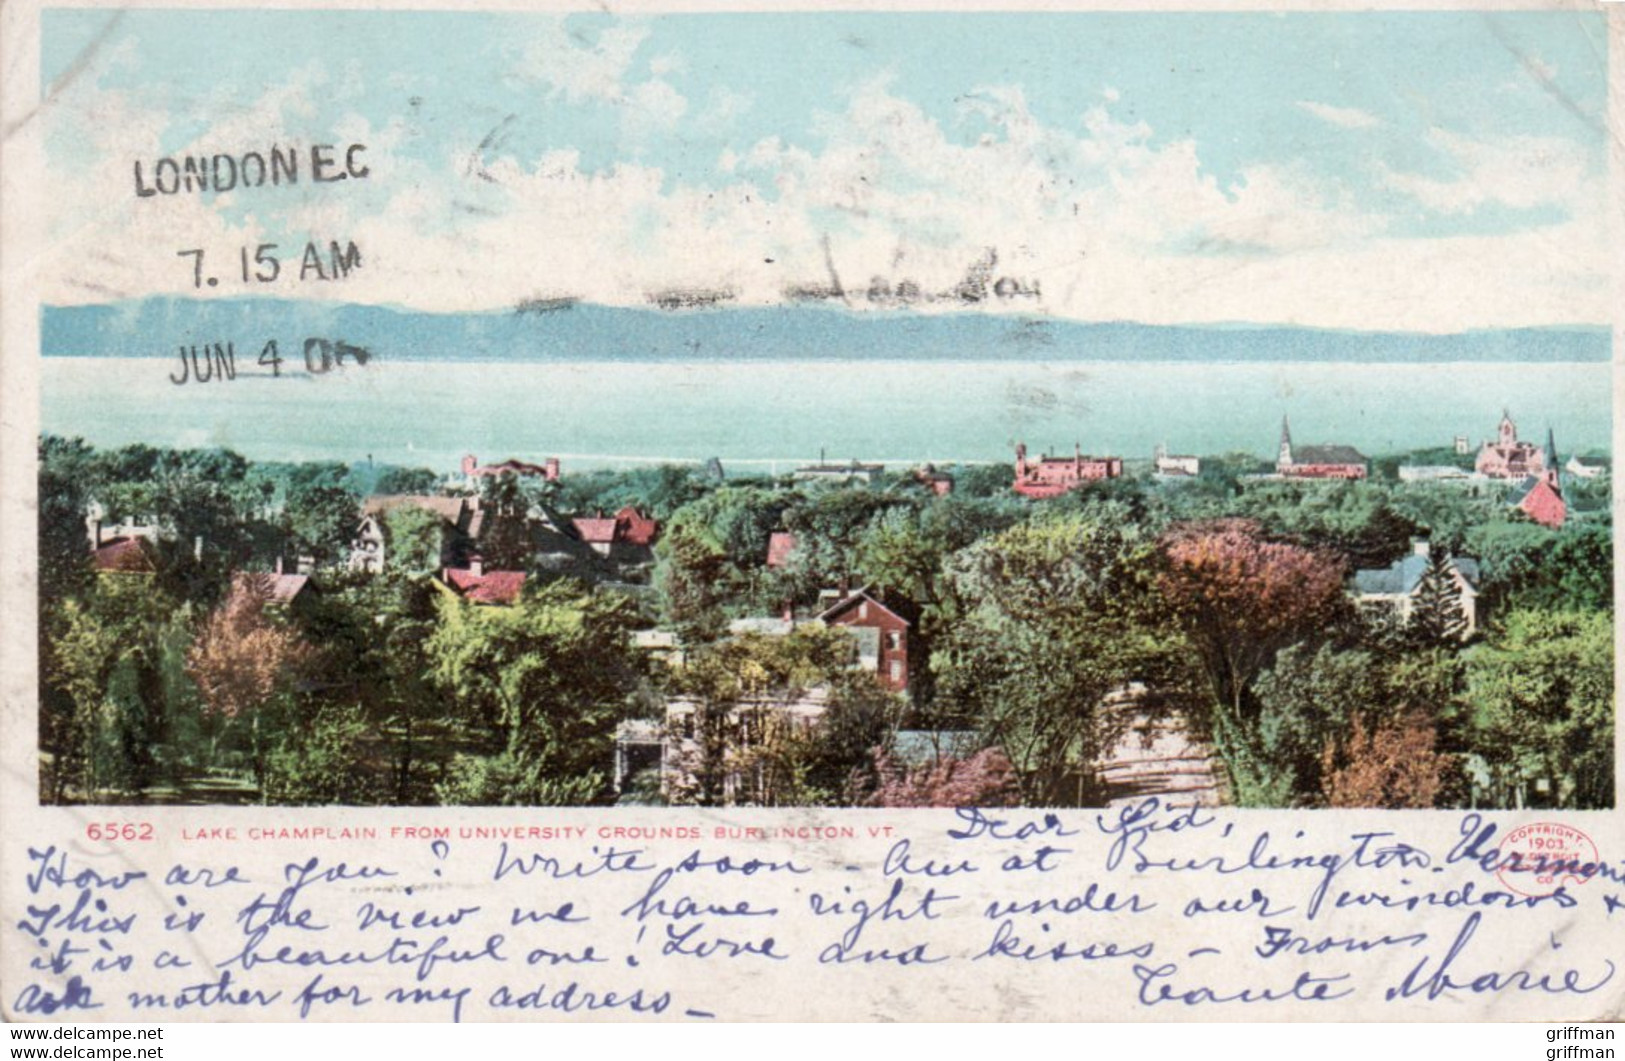 LONDON E.C
7. 15 AM
JUN 4
6562. LAKE CHAMPLAIN, FROM UNIVERSITY GROUNDS, BURLINGTON, VT.
COPYRIGHT,
1903,
DETROIT
CO
Dear Sid,
How are you? Write soon - Am at Burlington. Vermont
This is the view we have right under our windows &
it is a beautiful one! Love and kisses - From
ask mother for my address - Tante Marie
www.delcampe.net
www.delcampe.net
griffman
griffman